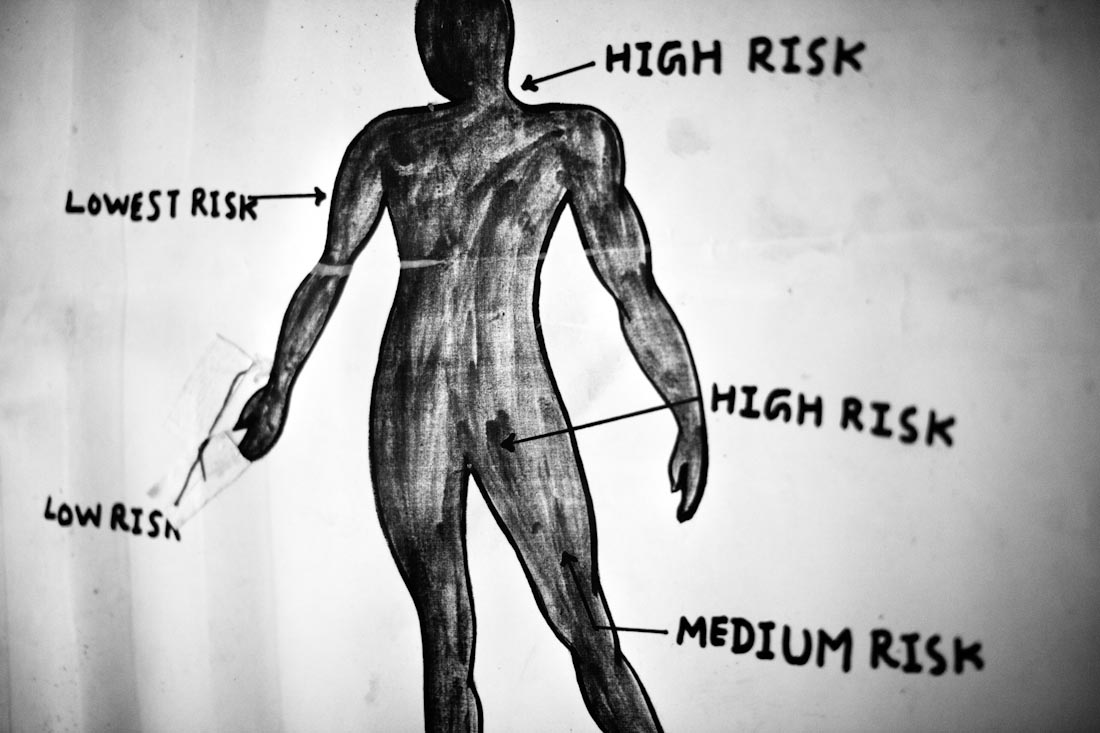 HIGH RISK
LOWEST RISK
HIGH RISK
LOW RISK
MEDIUM RISK